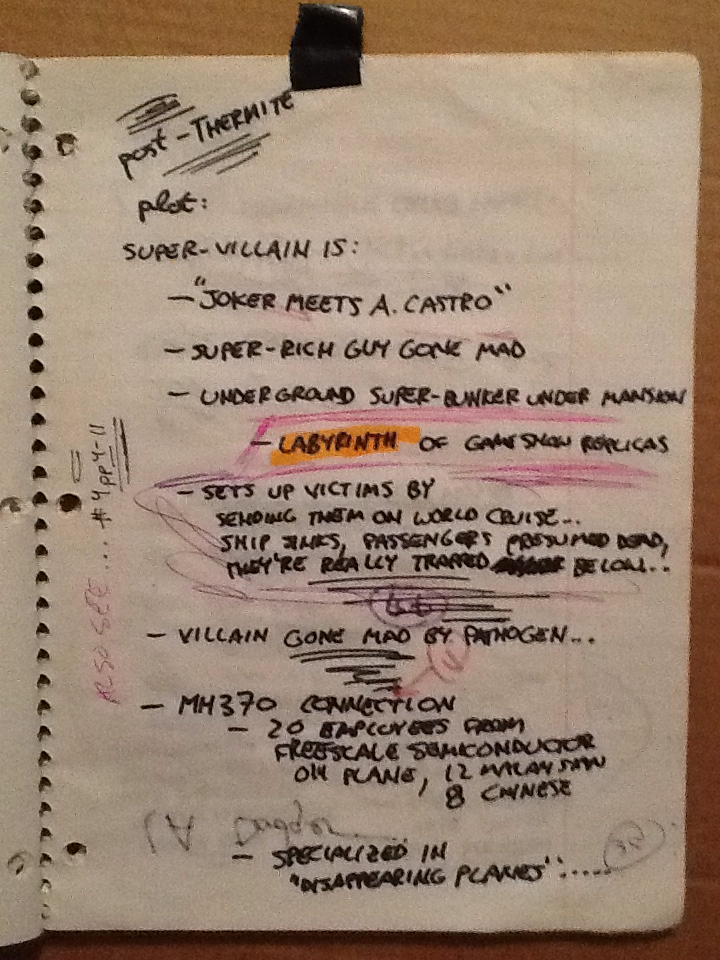 post-THERMITE
plot:
SUPER-VILLAIN IS:
— "JOKER MEETS A. CASTRO"
— SUPER-RICH GUY GONE MAD
— UNDERGROUND SUPER-BUNKER UNDER MANSION
— LABYRINTH OF GAMESHOW REPLICAS
— SETS UP VICTIMS BY
SENDING THEM ON WORLD CRUISE...
SHIP SINKS, PASSENGERS PRESUMED DEAD,
THEY'RE REALLY TRAPPED BELOW...
— VILLAIN GONE MAD BY PATHOGEN...
— MH370 CONNECTION
— 20 EMPLOYEES FROM
FREESCALE SEMICONDUCTOR
ON PLANE, 12 MALAYSIAN
8 CHINESE
— SPECIALIZED IN
"DISAPPEARING PLANES".....
ALSO SEE.... #4 pp4-11